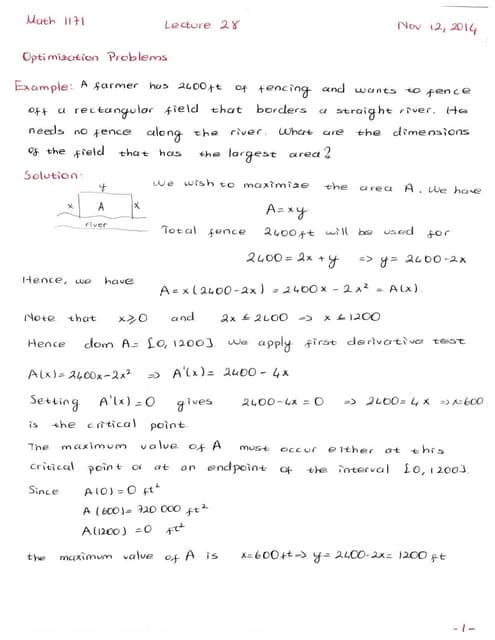 Math 1171 Lecture 28 Nov 12, 2014
Optimization Problems
Example: A farmer has 2400ft of fencing and wants to fence
off a rectangular field that borders a straight river. He
needs no fence along the river. What are the dimensions
of the field that has the largest area?
Solution:
y
x A x
river
We wish to maximize the area A. We have
A=xy
Total fence 2400ft will be used for
2400 = 2x + y => y = 2400-2x
Hence, we have
A = x(2400-2x) = 2400x - 2x² = A(x).
Note that x≥0 and 2x ≤ 2400 => x ≤ 1200
Hence dom A = [0,1200] We apply first derivative test
A(x) = 2400x-2x² => A'(x) = 2400 - 4x
Setting A'(x)=0 gives 2400-4x = 0 => 2400 = 4x => x=600
is the critical point.
The maximum value of A must occur either at this
critical point or at an endpoint of the interval [0,1200].
Since A(0) = 0 ft²
A(600) = 720 000 ft²
A(1200) = 0 ft²
the maximum value of A is x=600ft => y = 2400-2x = 1200 ft
-1-